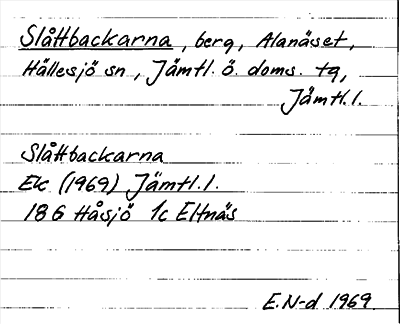 Slåttbackarna, berg, Alanäset,
Hällesjö sn, Jämtl. ö. doms. tg,
Jämtl. l.
Slåttbackarna
Ek (1969) Jämtl. l.
18G Håsjö 1c Eltnäs
E.N-d 1969.